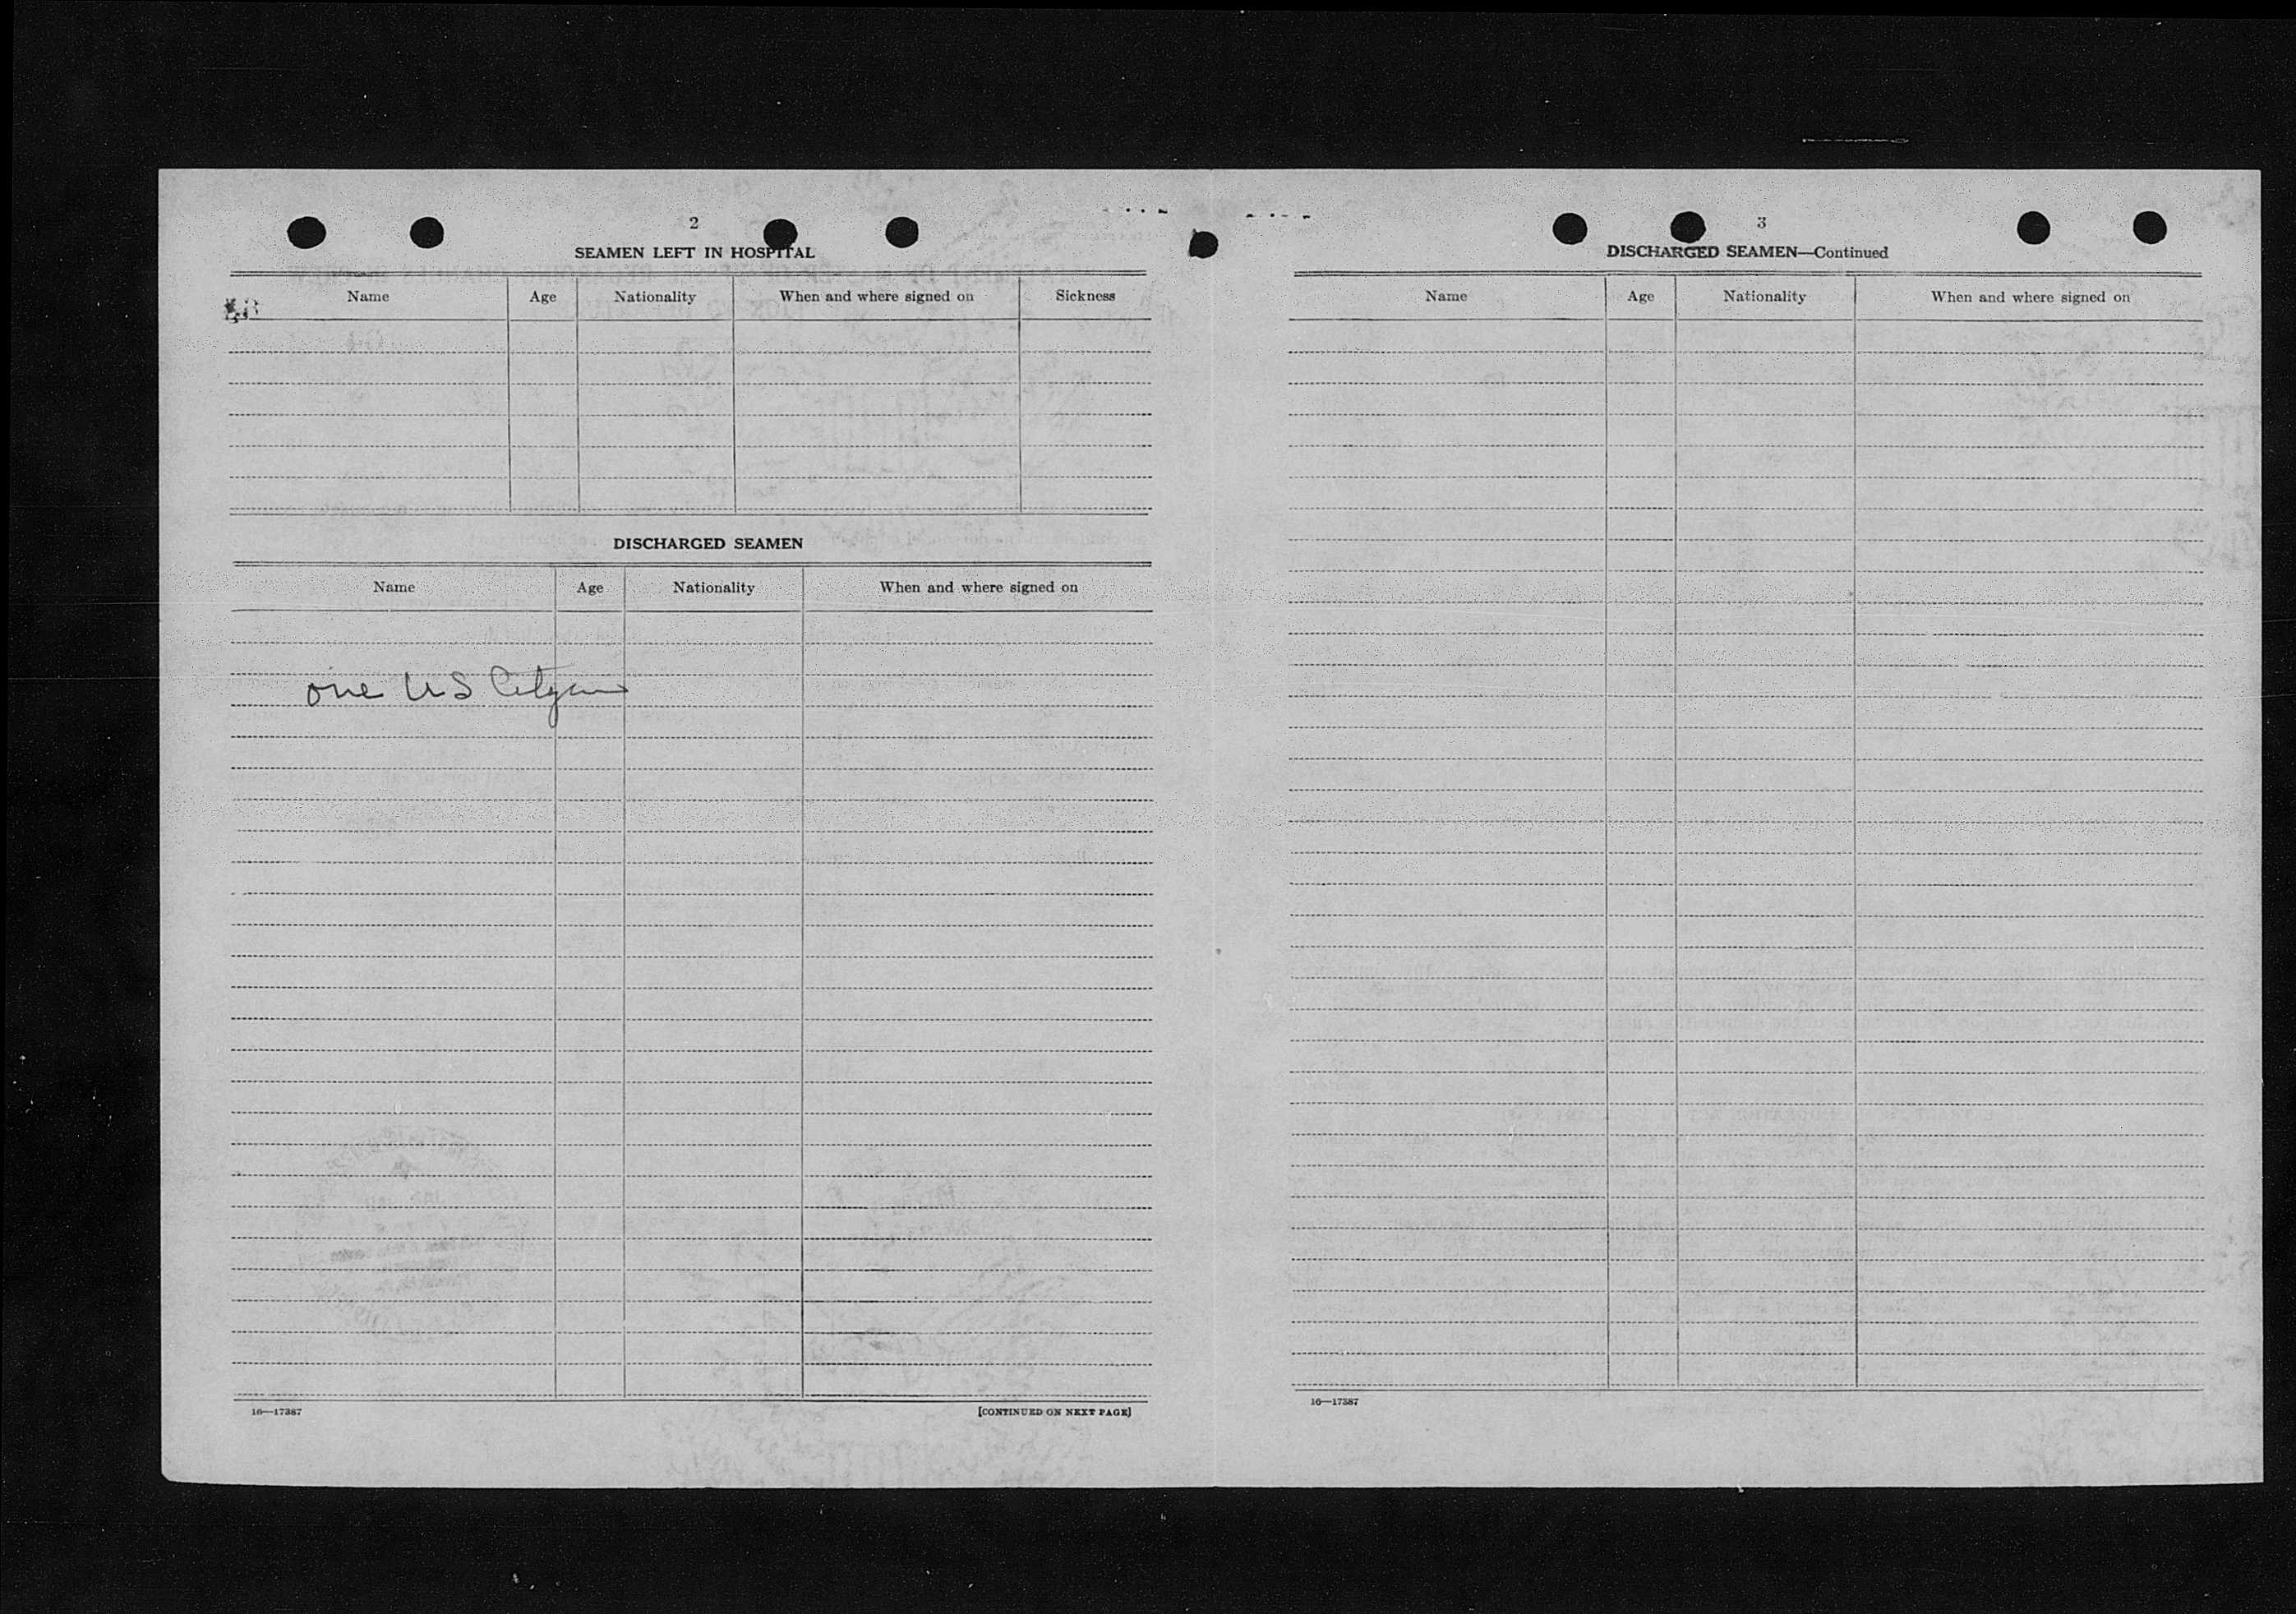 2
SEAMEN LEFT IN HOSPITAL
Name Age Nationality When and where signed on Sickness
DISCHARGED SEAMEN
Name Age Nationality When and where signed on
one US Citizen
16—17387
[CONTINUED ON NEXT PAGE]
3
DISCHARGED SEAMEN—Continued
Name Age Nationality When and where signed on
16—17387